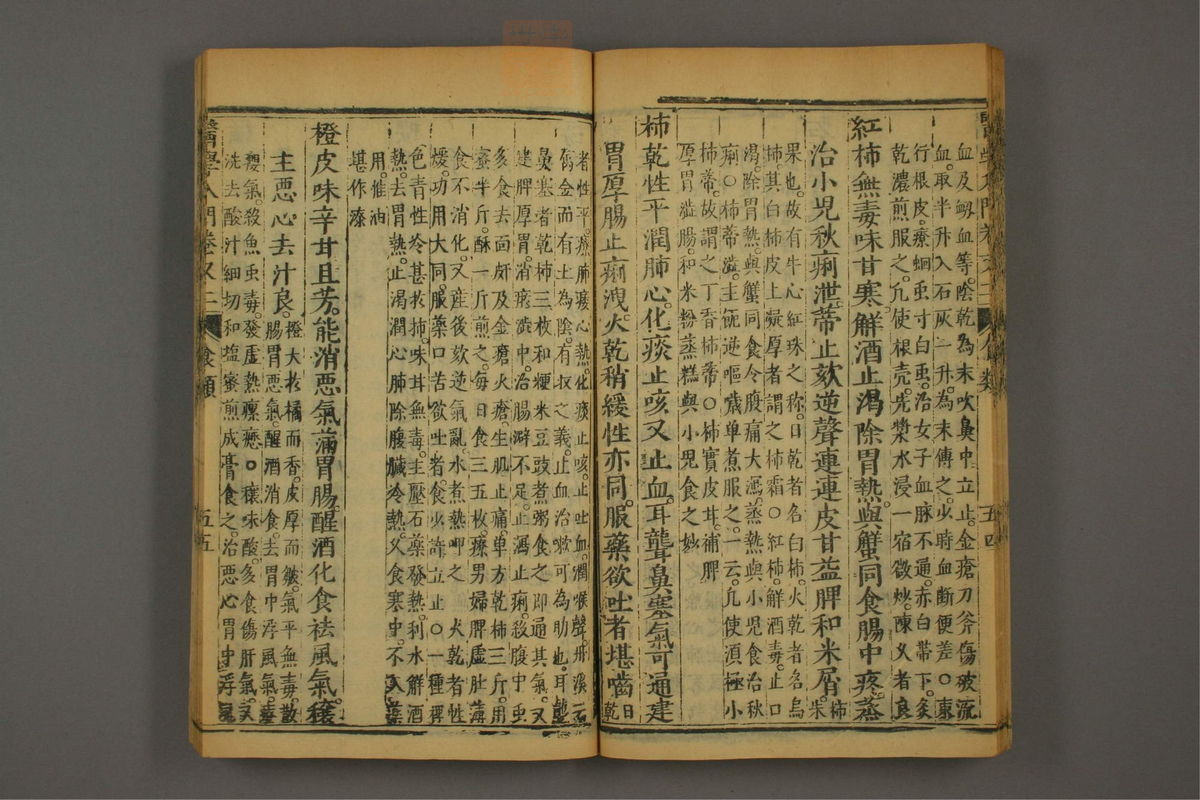 醫學入門卷又二 食類 五四
血及衂血等陰乾為末吹鼻中立止金瘡刀斧傷破流
血取半升入石灰一升為末傅之少時血斷便差○東
行根皮療蛔虫寸白虫治女子血脉不通赤白帶下炙
乾濃煎服之凢使根壳先漿水浸一宿微炒陳乂者良
紅柿無毒味甘寒解酒止渴除胃熱與蟹同食腸中疼蒸
治小児秋痢泄蒂止欬逆聲連連皮甘益脾和米屑柿朱
果也故有牛心紅珠之称日乾者名白柿火乾者名烏
柿其白柿皮上凝厚者謂之柿霜○紅柿解酒毒止口
渴除胃熱與蟹同食令腹痛大瀉蒸熱與小児食治秋
痢○柿蒂澁主𠯗逆嘔噦单煮服之一云凢使湏極小
柿蒂故謂之丁香柿蒂○柿實皮甘補脾
厚胃澁腸和米粉蒸糕與小児食之妙
柿乾性平潤肺心化痰止咳又止血耳聾鼻塞氣可通建
胃厚腸止痢洩火乾稍緩性亦同服藥欲吐者堪嚙日乾
者性平療肺痿心熱化痰止咳止吐血潤喉聲丹溪云
屬金而有土為陰有収之義止血治嗽可為助也耳聾
鼻塞者乾柿三枚和粳米豆豉煮粥食之即通其氣又
建脾厚胃消瘀澁中治腸澼不足止瀉止痢殺腹中虫
多食去面皯及金瘡火瘡生肌止痛单方乾柿三斤用
蜜半斤酥一斤煎之每日食三五枚療男婦脾虛肚薄
食不消化又産後欬逆氣亂水煮熱呷之 火乾者性
煖功用大同服藥口苦欲吐者食少許立止○一種椑
色青性冷甚於柿味甘無毒主壓石藥發熱利水解酒
熱去胃熱止渴潤心肺除腹臟冷熱乂食寒中不入藥
用催油
堪作漆
橙皮味辛甘且芳能消惡氣滿胃腸醒酒化食祛風氣穰
主惡心去汁良橙大於橘而香皮厚而皺氣平無毒散
腸胃惡氣醒酒消食去胃中浮風氣毒
癭氣殺魚虫毒發虛熱瘰癧○穰味酸多食傷肝氣又
洗去酸汁細切和塩蜜煎成膏食之治惡心胃中浮風
醫學入門卷又二 食類 五五